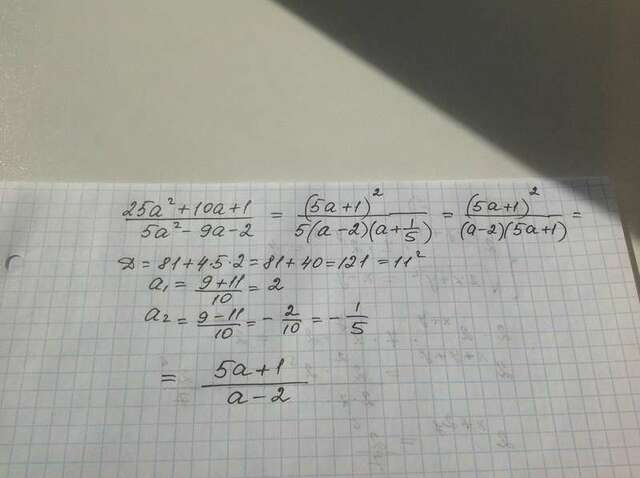 (25a²+10a+1)/(5a²-9a-2) = (5a+1)²/(5(a-2)(a+1/5)) = (5a+1)²/((a-2)(5a+1)) =
D = 81+4·5·2=81+40=121 = 11²
a₁ = (9+11)/10 = 2
a₂ = (9-11)/10 = -2/10 = -1/5
= (5a+1)/(a-2)